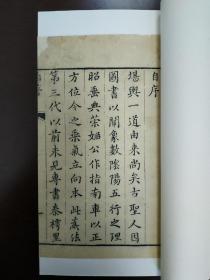 自序
堪輿一道由來尚矣古聖人因
圖書以闡象數陰陽五行之理
昭垂典策姬公作指南車以正
方位今之乘氣立向本此義法
第三代以前未見專書秦樗里